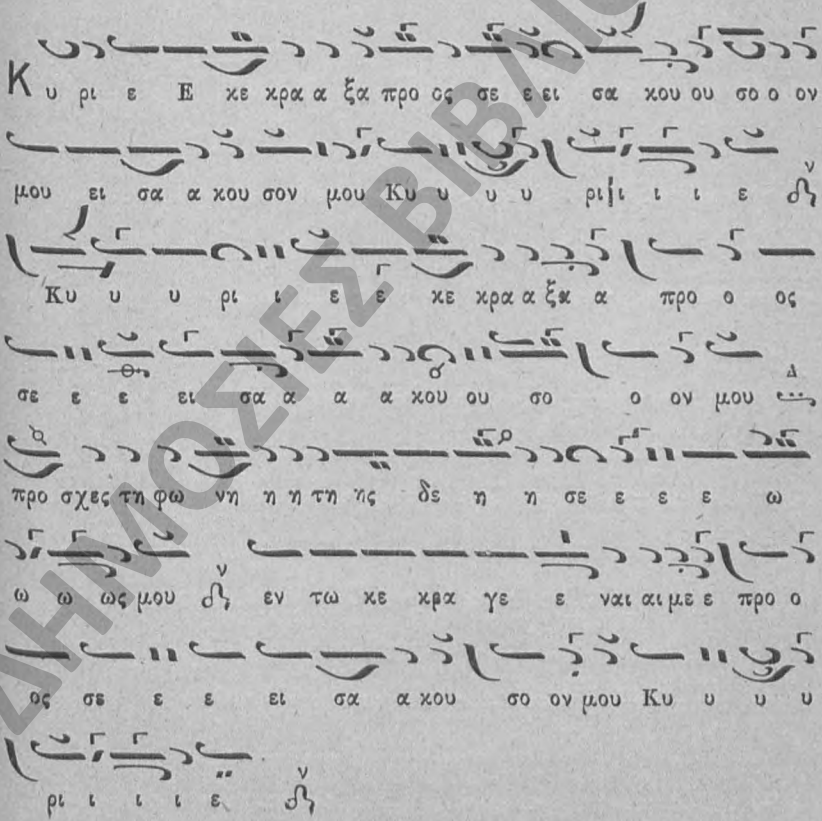 Κ υ ρι ε Ε κε κρα α ξα προ ος σε ε ει σα κου ου σο ο ον
μου ει σα α κου σον μου Κυ υ υ υ ρι ι ι ι ε
Κυ υ υ ρι ι ε ε κε κρα α ξα α προ ο ος
σε ε ε ει σα α α α κου ου σο ο ον μου Δ
προ σχες τη φω νη η η τη ης δε η η σε ε ε ε ω
ω ω ως μου ν εν τω κε κρα γε ε ναι αι με ε προ ο
ος σε ε ε ει σα α κου σο ον μου Κυ υ υ υ
ρι ι ι ι ε ν
ΔΗΜΟΣΙΕΣ